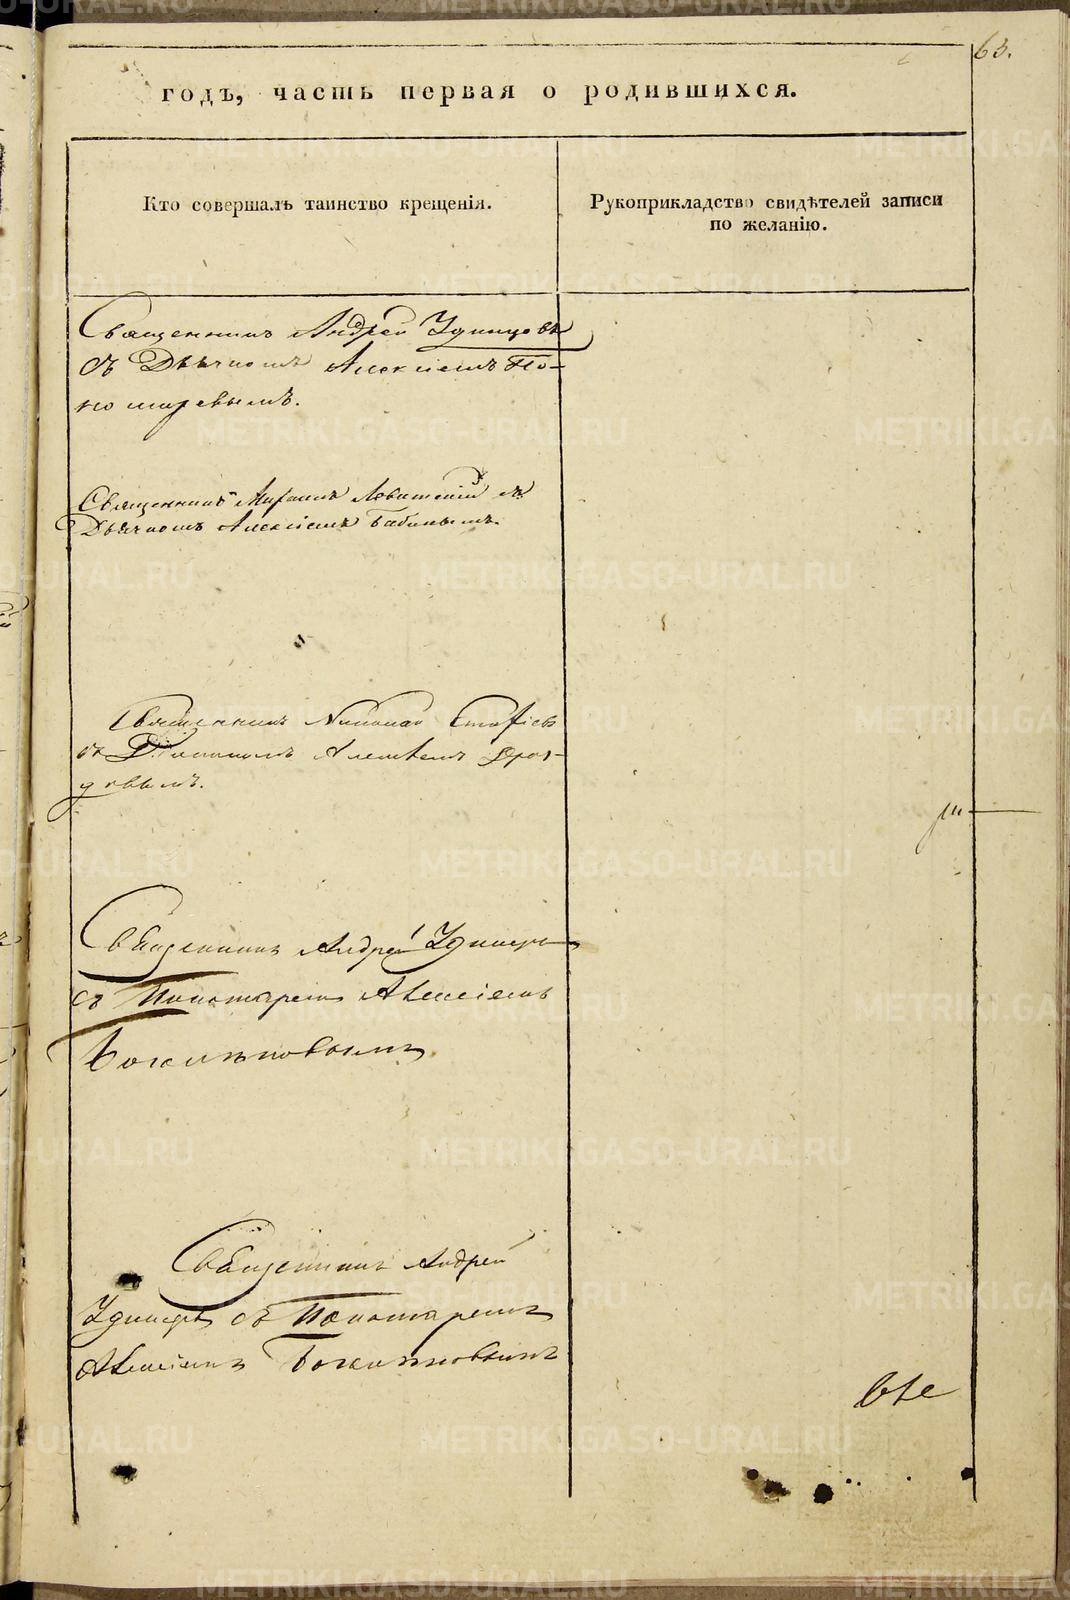 63.
годъ, часть первая о родившихся.
Кто совершалъ таинство крещенія.
Рукоприкладство свидѣтелей записи
по желанію.
Священникъ Андрей Удинцовъ
съ Дьячкомъ Алексіемъ По-
номаревымъ.
Священникъ Левитскій съ
Дьячкомъ Алексіемъ Бабинымъ.
Священникъ Николай
съ Алексѣемъ Дроз-
довымъ.
Священникъ Андрей Удинцовъ
съ Пономаремъ Алексіемъ
Священникъ Андрей
Удинцовъ съ Пономаремъ
Алексіемъ
METRIKI.GASO-URAL.RU